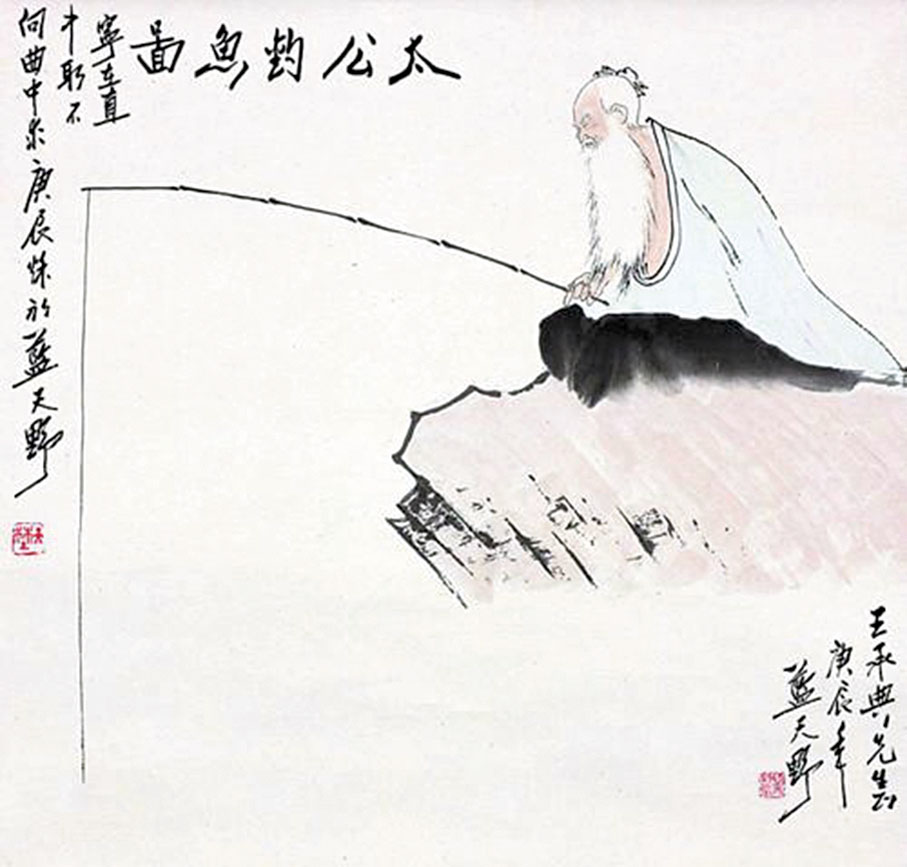 太公釣魚圖
寧在直
中取不
向曲中求庚辰秋於藍天野
王承典先生
庚辰年
藍天野